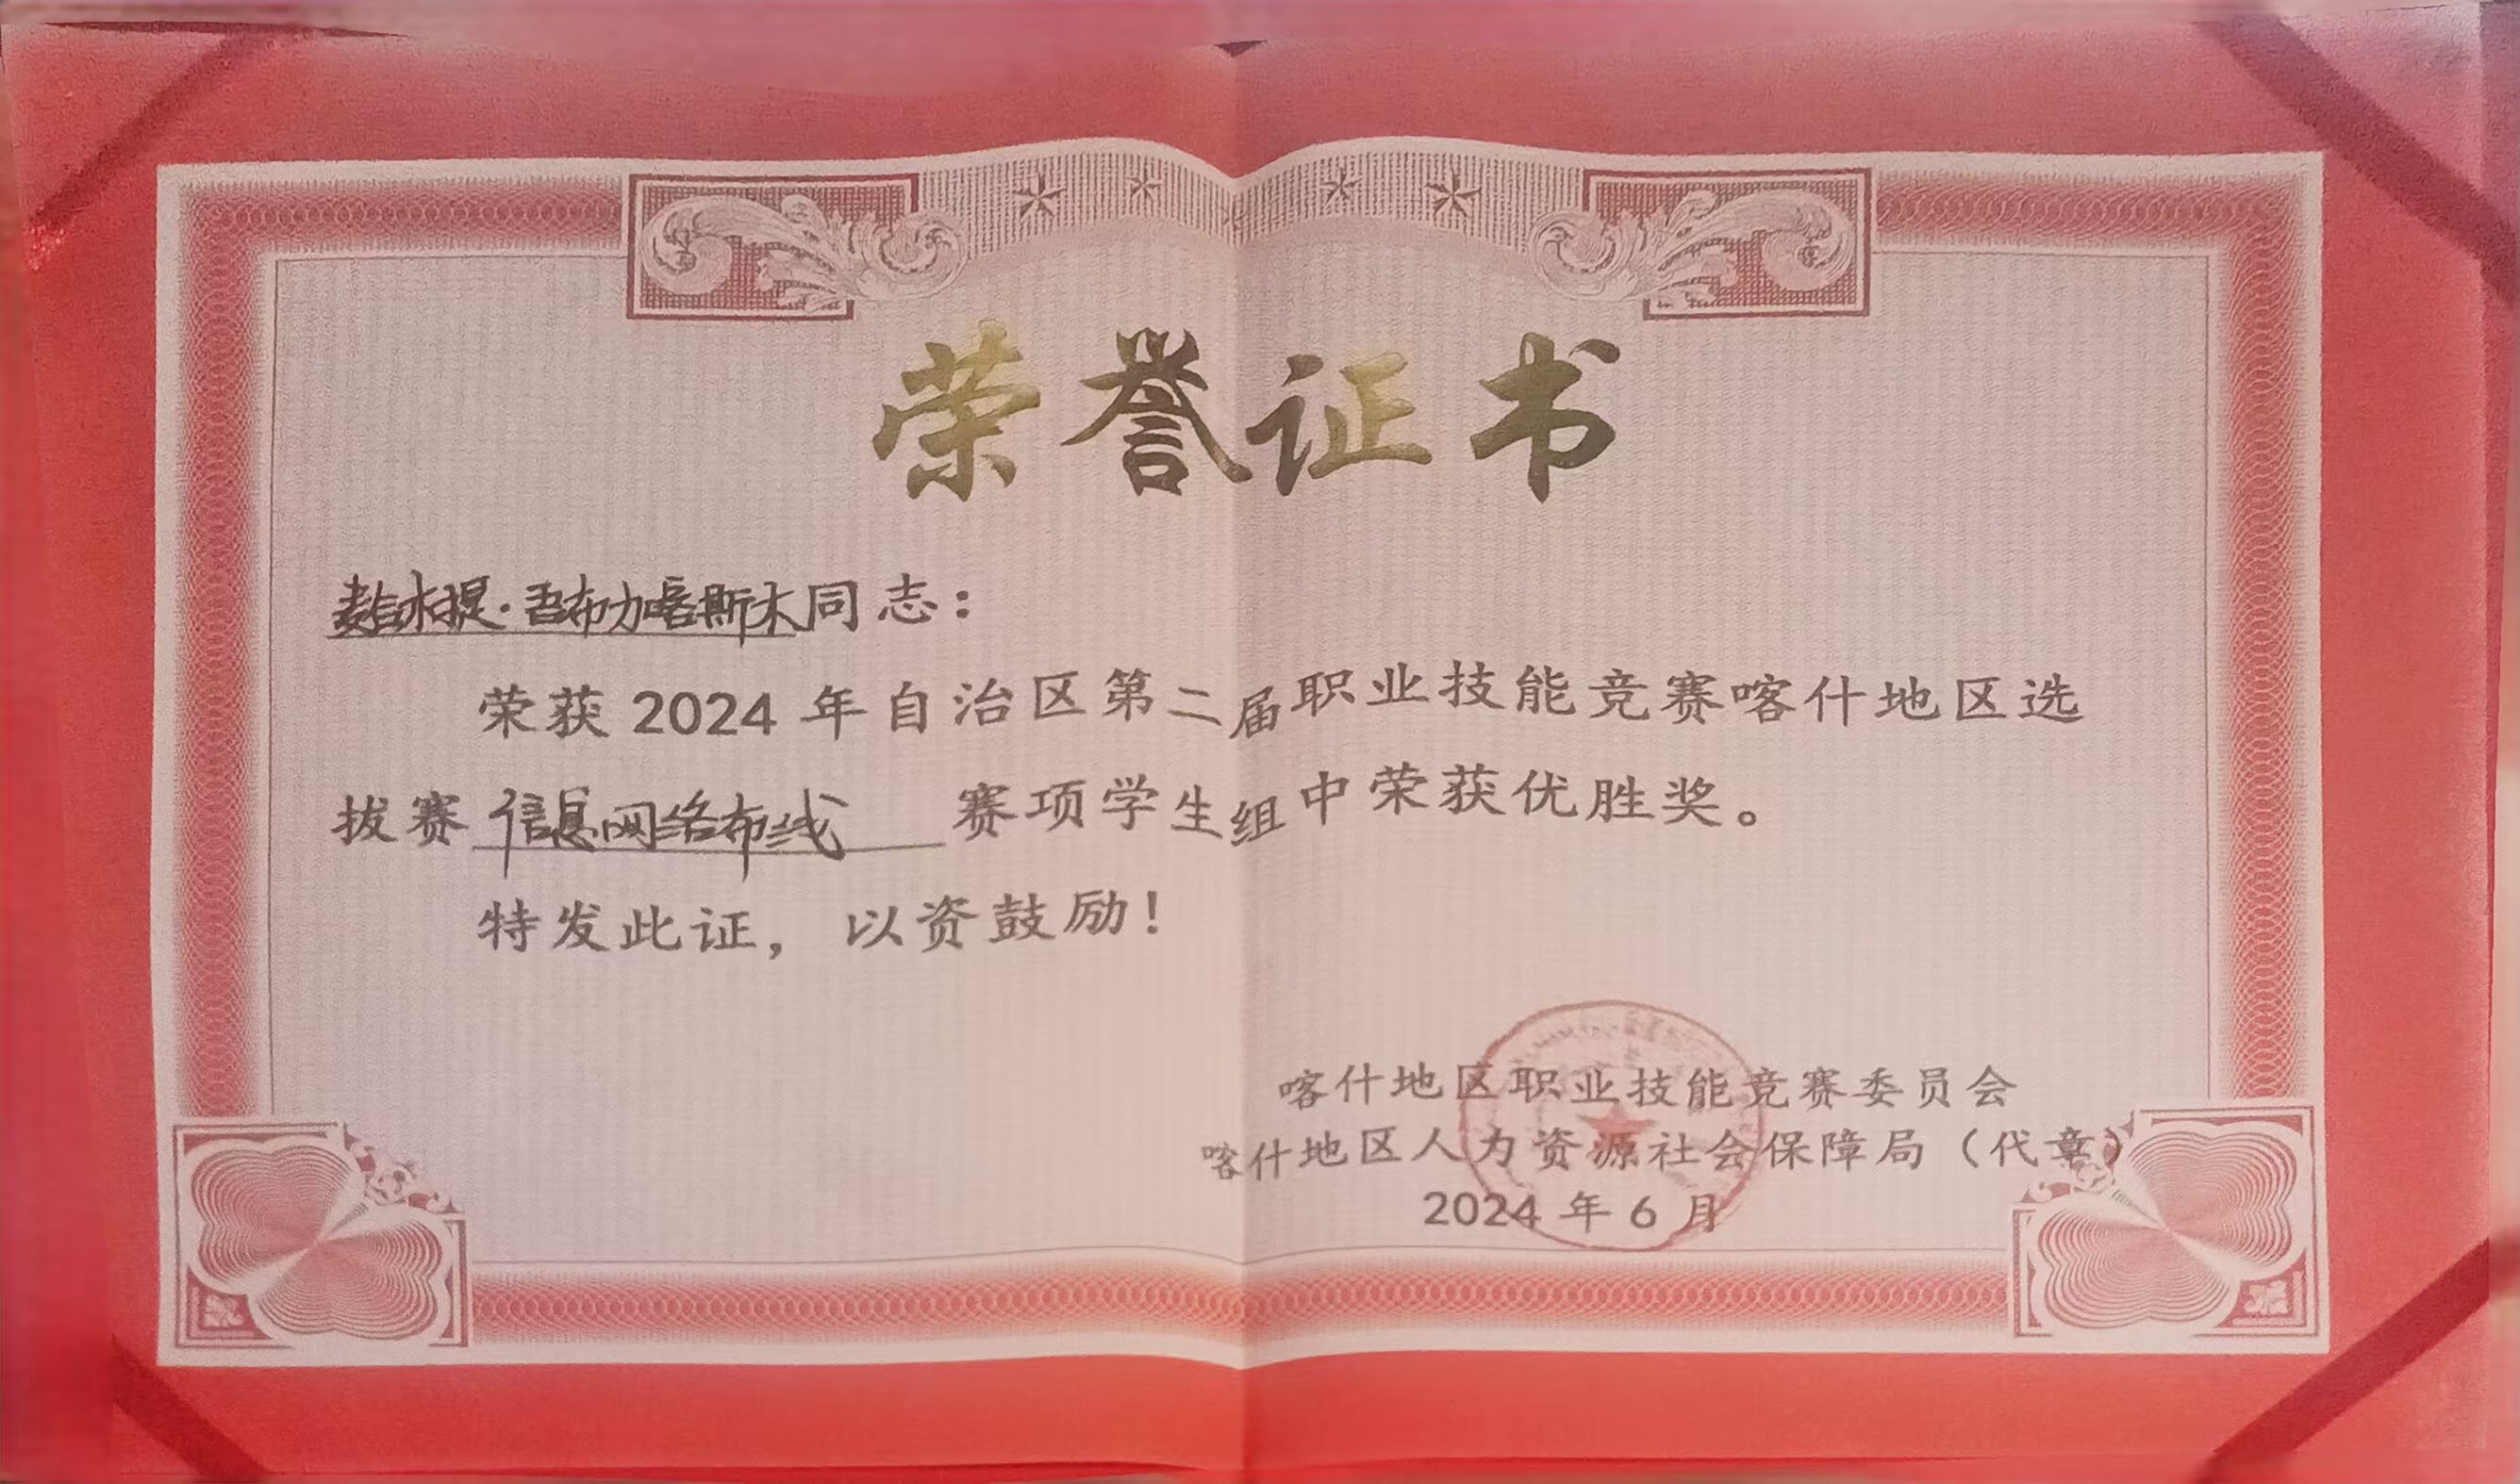 荣誉证书
麦合木提·吾布力喀斯木同志：
荣获2024年自治区第二届职业技能竞赛喀什地区选
拔赛 信息网络布线 赛项学生组中荣获优胜奖。
特发此证，以资鼓励！
喀什地区职业技能竞赛委员会
喀什地区人力资源社会保障局（代章）
2024年6月